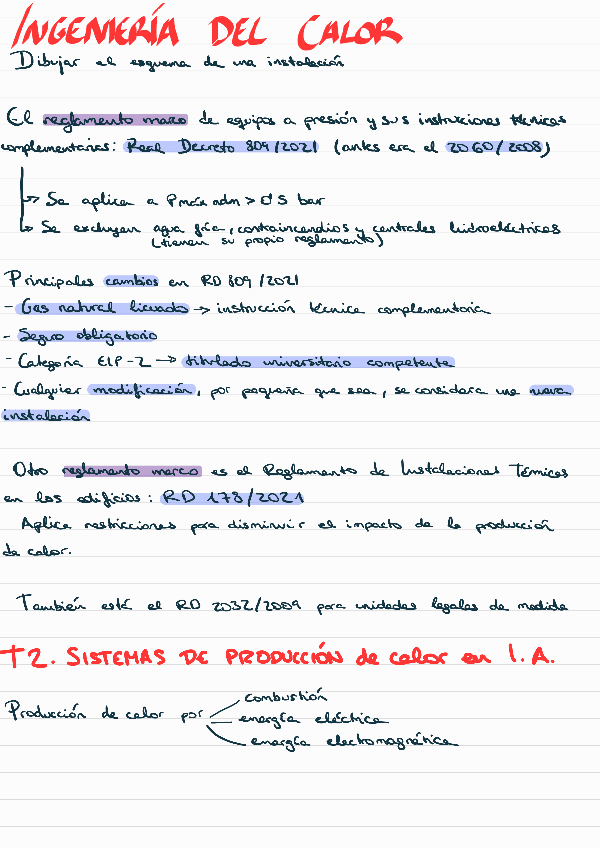 INGENIERÍA DEL CALOR
Dibujar el esquema de una instalación
El reglamento marco de equipos a presión y sus instrucciones técnicas
complementarias: Real Decreto 809/2021 (antes era el 2060/2008)
→ Se aplica a Pmáx adm > 0'5 bar
→ Se excluyen agua fría, contraincendios y centrales hidroeléctricas
(tienen su propio reglamento)
Principales cambios en RD 809/2021
- Gas natural licuado → instrucción técnica complementaria
- Seguro obligatorio
- Categoría EIP-2 → titulado universitario competente
- Cualquier modificación, por pequeña que sea, se considera una nueva
instalación
Otro reglamento marco es el Reglamento de Instalaciones Térmicas
en los edificios: RD 178/2021
Aplica restricciones para disminuir el impacto de la producción
de calor.
También está el RD 2032/2009 para unidades legales de medida
T2. SISTEMAS DE PRODUCCIÓN de calor en I.A.
Producción de calor por
combustión
energía eléctrica
energía electromagnética